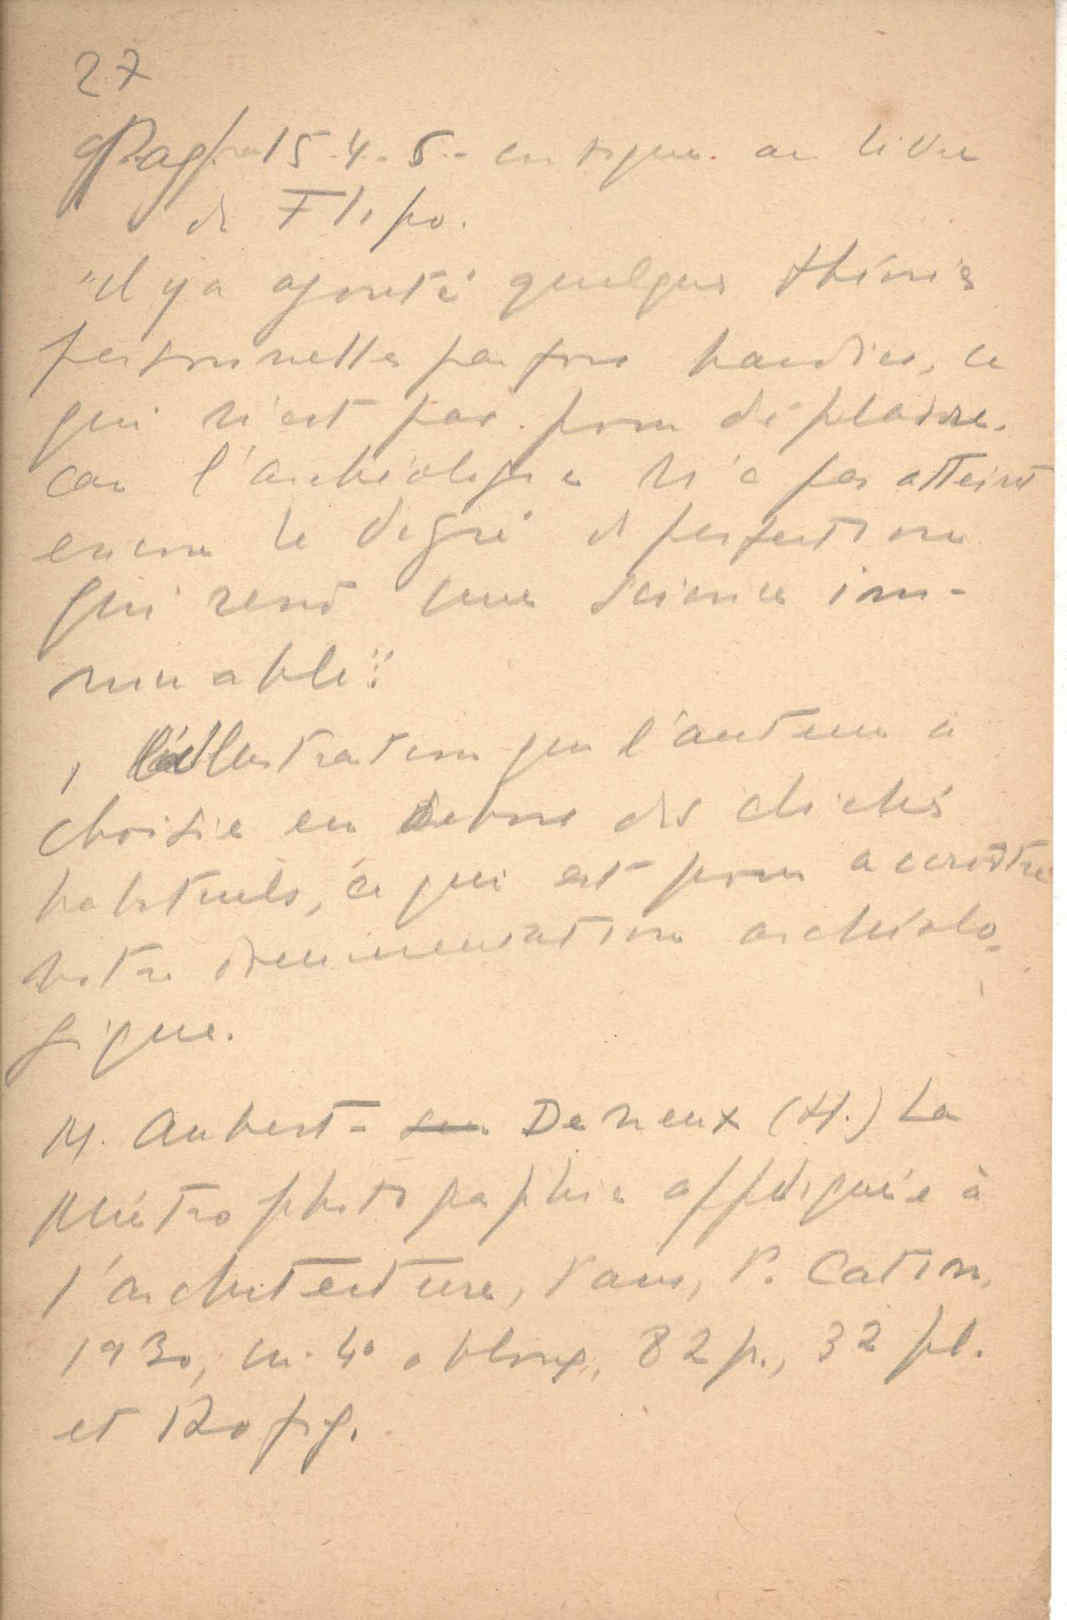 27
Pag 154-5 - critique au livre
de Flipo.
"Il y a ajouté quelques théories
personnelles parfois hardies, ce
qui n'est pas pour déplaire.
car l'archéologie n'a pas atteint
encore le degré de perfection
qui rend une science im-
muable".
l'illustration que l'auteur a
choisie en dehors des clichés
habituels, ce qui est pour accroître
notre documentation archéolo-
gique.
M. Aubert - Deneux (H.) La
Métrophotographie appliquée à
l'architecture, Paris, P. Catin,
1930, in-4° oblong, 82 p., 32 pl.
et 120 fig.